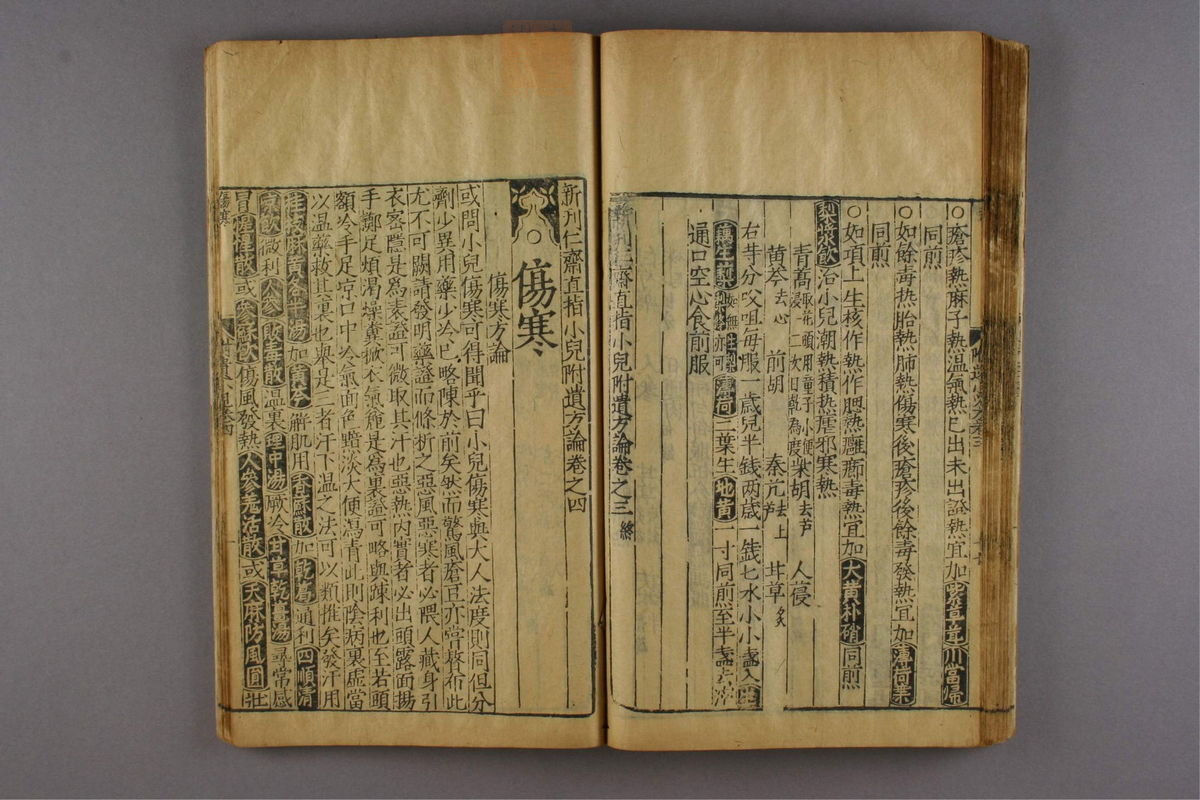 ○瘡疹熱麻子熱温氣熱已出未出證熱宜加紫草茸川當歸
同煎
○如餘毒热胎熱肺熱傷寒後瘡疹後餘毒發熱宜加薄荷葉
同煎
○如項上生核作熱作腮熱癰癤毒熱宜加大黄朴硝同煎
梨漿飲治小兒潮熱積热瘧邪寒熱
青蒿取花頭用童子小便浸一二次日乹為度 柴胡去芦 人𠊱
黄芩去心 前胡 秦艽去上芦 甘草炙
右等分㕮咀每服一歲兒半錢两歳一錢匕水小小盞入生
藕生梨如無生梨梨條亦可薄荷二葉生地黄一寸同煎至半盞去滓
通口空心食前服
新刊仁齋直指小兒附遺方論卷之三 終
新刊仁齋直指小兒附遺方論卷之四
○傷寒
傷寒方論
或問小兒傷寒可得聞乎曰小兒傷寒與大人法度則同但分
劑少異用藥少冷已略陳於前矣然而驚風瘡豆亦常發布此
尤不可闕請發明藥證而條析之惡風惡寒者必喂人藏身引
衣密隱是爲表證可微取其汗也惡熱内實者必出頭露面揚
手擲足煩渇燥糞掀衣氣麄是爲裏證可略與踈利也至若頭
額冷手足京口中冷氣面色黯淡大便瀉青此則陰病裏虚當
以温藥救其裏也與是三者汗下温之法可以類推矣發汗用
桂枝麻黄各半湯加黄芩解肌用香蘇散加乾葛通利四順清
凉飲微利人參敗毒散温裏理中湯厥冷甘草乾薑湯尋常感
冒惺惺散或參蘇飲傷風發熱人參羗活散或天麻防風圓壮
傷寒